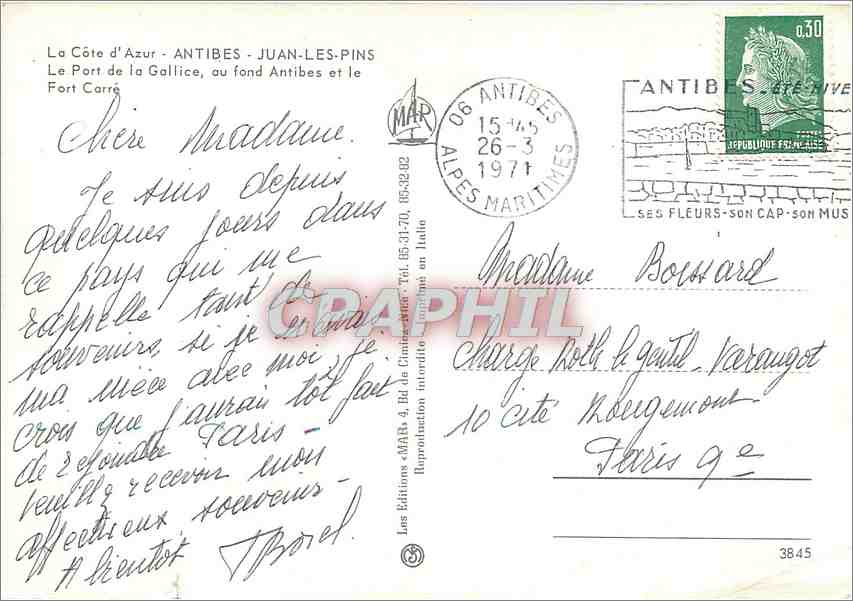 La Côte d'Azur - ANTIBES - JUAN-LES-PINS
Le Port de la Gallice, au fond Antibes et le
Fort Carré
Chère Madame.
Je suis depuis
quelques jours dans
ce pays qui me
rappelle tant de
souvenirs, si je n'avais
ma nièce avec moi, je
crois que j'aurais tôt fait
de rejoindre Paris -
Veuillez recevoir mon
affectueux souvenir -
A bientôt
MAR
Les Editions «MAR» 4, Bd de Cimiez-Nice - Tél. 85-31-70, 85-32-82
Reproduction interdite - Imprimé en Italie
06 ANTIBES
15H45
26-3
1971
ALPES MARITIMES
ANTIBES - ÉTÉ-HIVE
SES FLEURS-SON CAP-SON MUS
0,30
POSTES
REPUBLIQUE FRANÇAISE
Madame Boissard
Charge Roth le gentil - Varangot
10 cité Rougemont
Paris 9e
3845
CPAPHIL